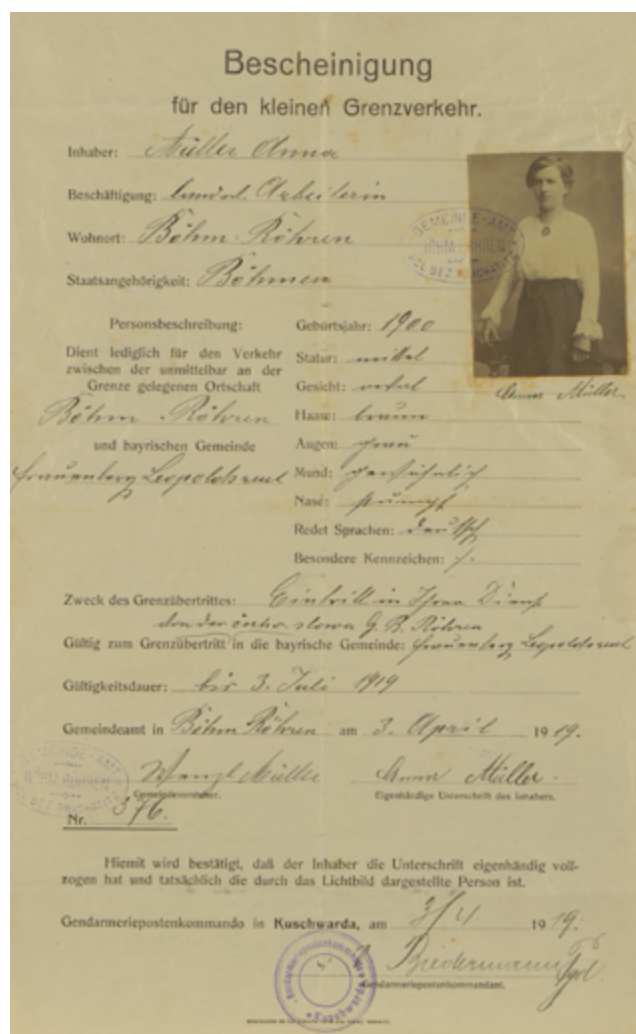 Bescheinigung
für den kleinen Grenzverkehr.
Inhaber: Müller Anna
Beschäftigung: landw. Arbeiterin
Wohnort: Böhm. Röhren
GEMEINDE-AMT
BÖHM. RÖHREN
POL. BEZ. PRACHATITZ
Staatsangehörigkeit: Böhmen
Personsbeschreibung: Geburtsjahr: 1900
Dient lediglich für den Verkehr
zwischen der unmittelbar an der
Grenze gelegenen Ortschaft
Böhm. Röhren
und bayrischen Gemeinde
Frauenberg Leopoldsreut
Statur: mittel
Gesicht: oval
Haare: braun
Augen: grau
Mund: gewöhnlich
Nase: stumpf
Redet Sprachen: deutsch
Besondere Kennzeichen: /.
Anna Müller.
Zweck des Grenzübertrittes: Eintritt in Ihren Dienst
Röhren
Gültig zum Grenzübertritt in die bayrische Gemeinde: Frauenberg Leopoldsreut
Gültigkeitsdauer: bis 3. Juli 1919
Gemeindeamt in Böhm. Röhren am 3. April 1919.
Wenzl Müller Anna Müller.
Gemeindevorsteher. Eigenhändige Unterschrift des Inhabers.
GEMEINDE-AMT
BÖHM. RÖHREN
POL. BEZ. PRACHATITZ
Nr. 376.
Hiemit wird bestätigt, daß der Inhaber die Unterschrift eigenhändig voll-
zogen hat und tatsächlich die durch das Lichtbild dargestellte Person ist.
Gendarmeriepostenkommando in Kuschwarda, am 3/4 1919.
Biedermann
Gendarmeriepostenkommandant.
Gendarmeriepostenkommando
Kuschwarda